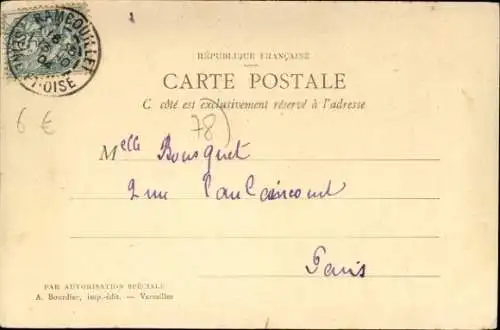 RAMBOUILLET
ET-OISE
RÉPUBLIQUE FRANÇAISE
CARTE POSTALE
Ce côté est exclusivement réservé à l'adresse
6 €
78)
Melle Bousquet
2 rue Caulaincourt
Paris
PAR AUTORISATION SPÉCIALE
A. Bourdier, imp.-édit. — Versailles